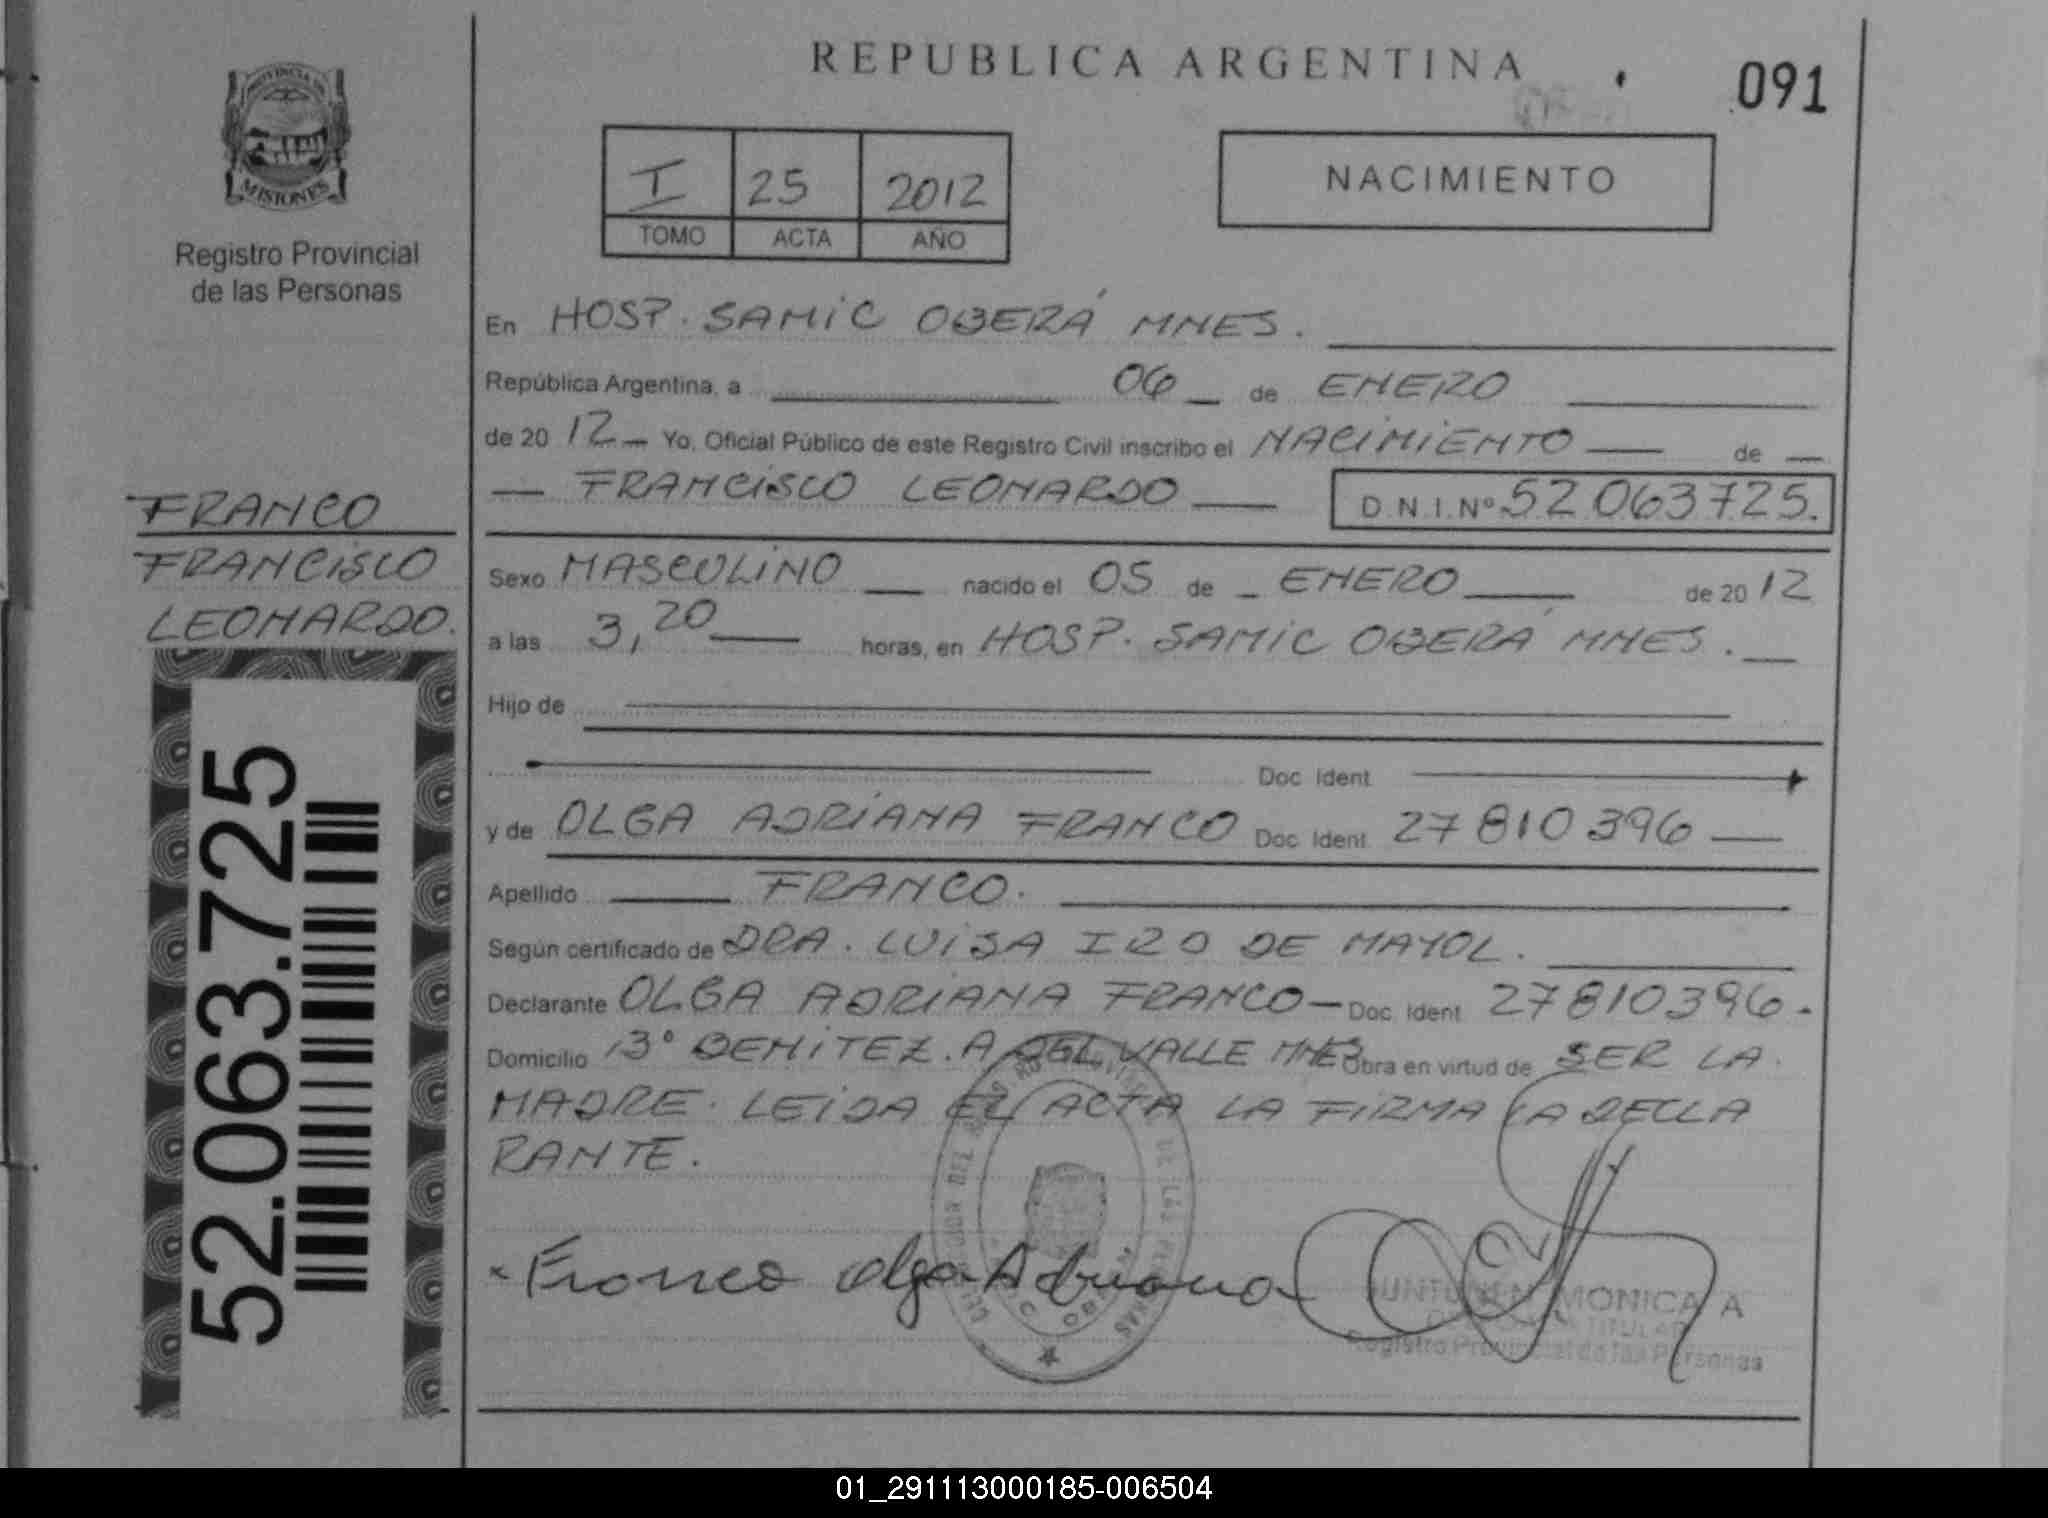 REPUBLICA ARGENTINA
091
PROVINCIA DE
MISIONES
Registro Provincial
de las Personas
I 25 2012
TOMO ACTA AÑO
NACIMIENTO
En HOSP. SAMIC OBERÁ MNES.
República Argentina, a 06 de ENERO
de 20 12 Yo, Oficial Público de este Registro Civil inscribo el NACIMIENTO de
FRANCISCO LEONARDO D.N.I. Nº 52 063725.
FRANCO
FRANCISCO
LEONARDO.
Sexo MASCULINO nacido el 05 de ENERO de 20 12
a las 3,20 horas, en HOSP. SAMIC OBERÁ MNES.
Hijo de
Doc. Ident.
y de OLGA ADRIANA FRANCO Doc. Ident. 27 810 396
Apellido FRANCO.
Según certificado de DRA. LUISA IRO DE MAYOL.
Declarante OLGA ADRIANA FRANCO - Doc. Ident. 27810396.
Domicilio 13° BENITEZ. A DEL VALLE MNES Obra en virtud de SER LA
MADRE. LEIDA EL ACTA LA FIRMA LA DECLA
RANTE.
52.063.725
Franco Olga Adriana
MONICA A
TITULAR
Registro Provincial de las Personas
01_291113000185-006504